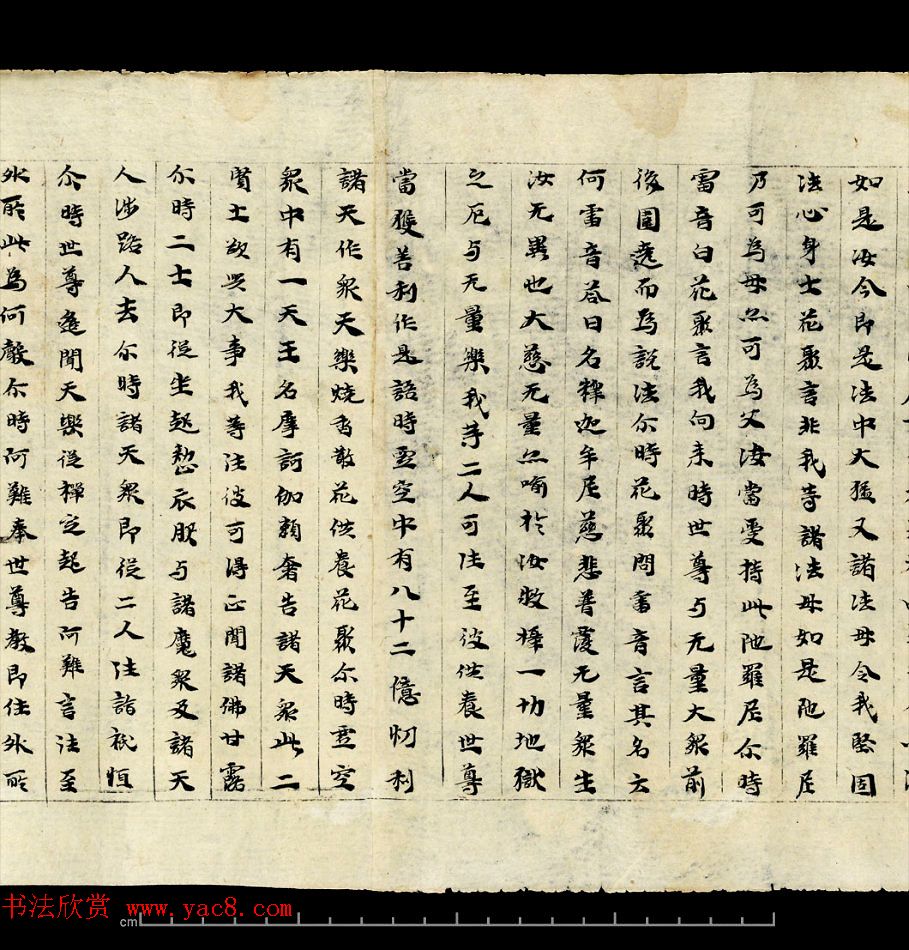 如是汝今即是法中大猛又諸法母令我堅固
法心身士花聚言非我等諸法母如是陁羅尼
乃可為母亦可為父汝當受持此陁羅尼尒時
雷音白花聚言我向來時世尊与无量大衆前
後圍遶而為說法尒時花聚問雷音言其名云
何雷音荅曰名釋迦牟尼慈悲普覆无量衆生
汝无異也大慈无量亦喻於汝救攝一切地獄
之厄与无量樂我等二人可往至彼供養世尊
當獲善利作是語時虛空中有八十二億忉利
諸天作衆天樂燒香散花供養花聚尒時虛空
衆中有一天王名摩訶伽賴奢告諸天衆此二
賢士欲興大事我等往彼可得正聞諸佛甘露
尒時二士即從坐起整衣服与諸魔衆及諸天
人涉路人去尒時諸天衆即從二人往詣祇恒
尒時世尊遙聞天樂從禪定起告阿難言汝至
外所此為何聲尒時阿難奉世尊教即往外所
书法欣赏 www.yac8.com
cm